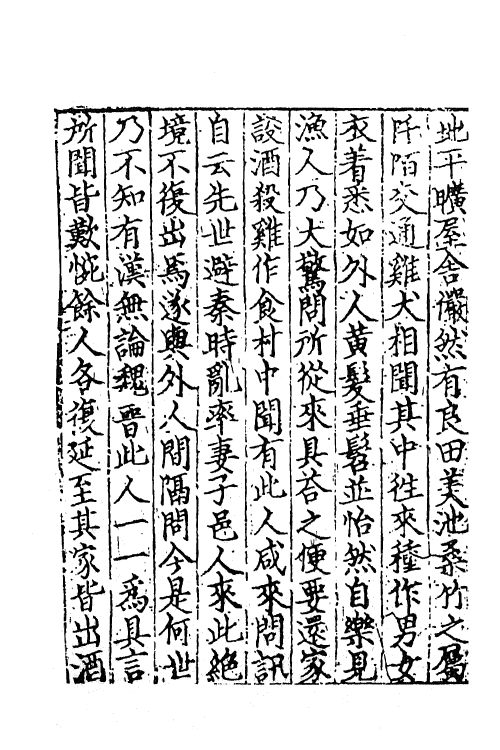 地平曠屋舍儼然有良田美池桑竹之屬
阡陌交通雞犬相聞其中徃來種作男女
衣着悉如外人黄髮垂髫並怡然自樂見
漁人乃大驚問所從來具荅之便要還家
設酒殺雞作食村中聞有此人咸來問訊
自云先世避秦時亂率妻子邑人來此絶
境不復出焉遂與外人間隔問今是何世
乃不知有漢無論魏晉此人一一爲具言
所聞皆歎惋餘人各復延至其家皆出酒